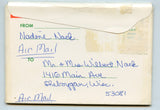 FROM
Nadine Nack
Air Mail
TO
Mr + Mrs Wilbert Nack
1416 Main Ave
Sheboygan, Wisc.
53081
Air Mail